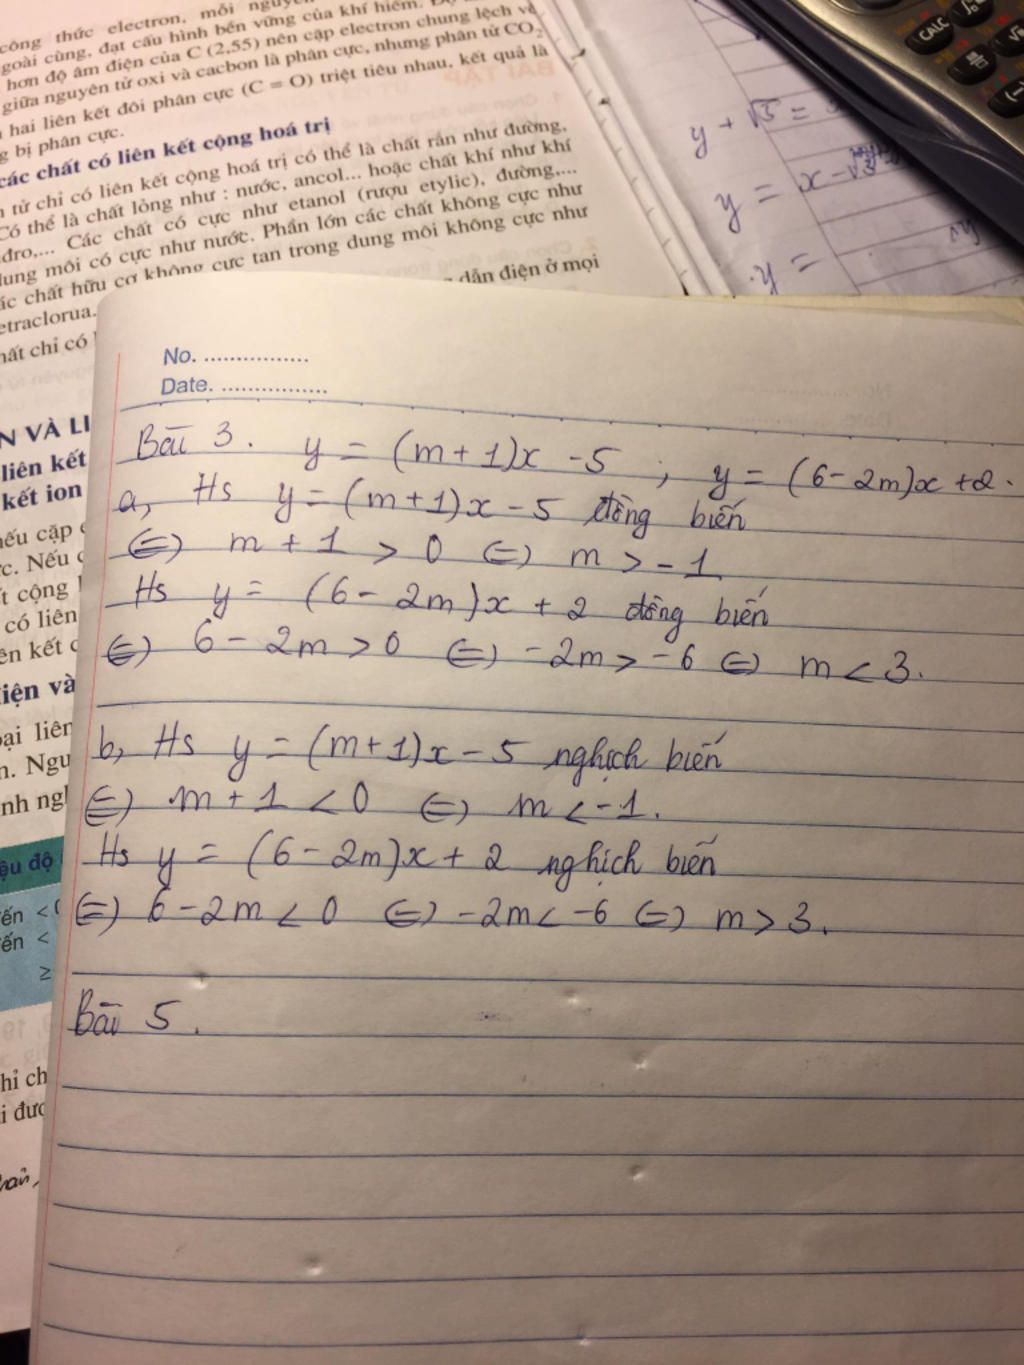 công thức electron, mỗi
ngoài cùng, đạt cấu hình bền vững của khí hiếm.
hơn độ âm điện của C (2,55) nên cặp electron chung lệch về
giữa nguyên tử oxi và cacbon là phân cực, nhưng phân tử CO₂
hai liên kết đôi phân cực (C = O) triệt tiêu nhau, kết quả là
bị phân cực.
các chất có liên kết cộng hoá trị
tử chỉ có liên kết cộng hoá trị có thể là chất rắn như đường,
Có thể là chất lỏng như : nước, ancol... hoặc chất khí như khí
đro,... Các chất có cực như etanol (rượu etylic), đường,...
dung môi có cực như nước. Phần lớn các chất không cực như
các chất hữu cơ không cực tan trong dung môi không cực như
etraclorua.
dẫn điện ở mọi
chất chỉ có
N VÀ LI
liên kết
kết ion
nếu cặp
c. Nếu
t cộng
có liên
ên kết
iện và
oại liên
n. Ngu
nh ngh
ệu độ
ến <
ến <
≥
hỉ ch
i đượ
y + √3 =
y = x -
y =
CALC
No.
Date.
Bài 3. y = (m+1)x - 5 ; y = (6 - 2m)x + 2.
a, Hs y = (m+1)x - 5 đồng biến
⇔ m + 1 > 0 ⇔ m > -1
Hs y = (6 - 2m)x + 2 đồng biến
⇔ 6 - 2m > 0 ⇔ -2m > -6 ⇔ m < 3.
b, Hs y = (m+1)x - 5 nghịch biến
⇔ m + 1 < 0 ⇔ m < -1.
Hs y = (6 - 2m)x + 2 nghịch biến
⇔ 6 - 2m < 0 ⇔ -2m < -6 ⇔ m > 3.
Bài 5.